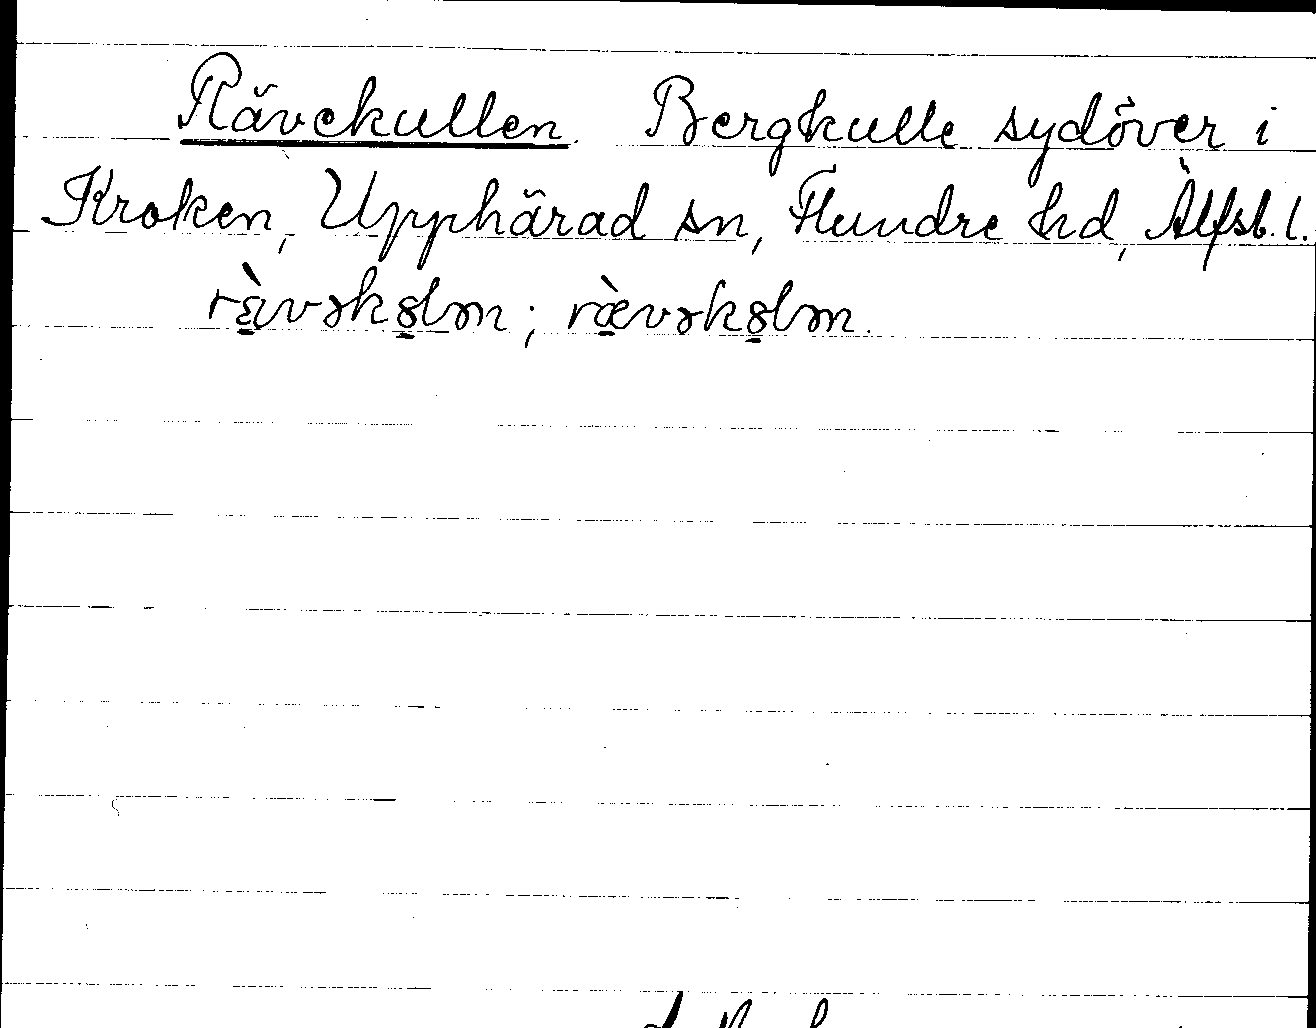 Rävekullen. Bergkulle sydöver i
Kroken, Upphärad sn, Flundre hd, Älfsb. l.
rɛ̀vəkɷlən; rævəkɷlən.